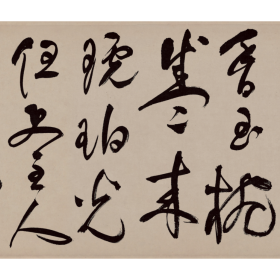 香玉椀
盛来
琥珀光
但使主人